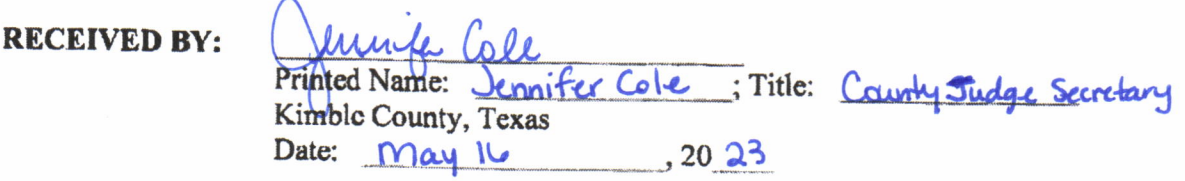 RECEIVED BY: Jennifer Cole
Printed Name: Jennifer Cole ; Title: County Judge Secretary
Kimble County, Texas
Date: May 16, 20 23